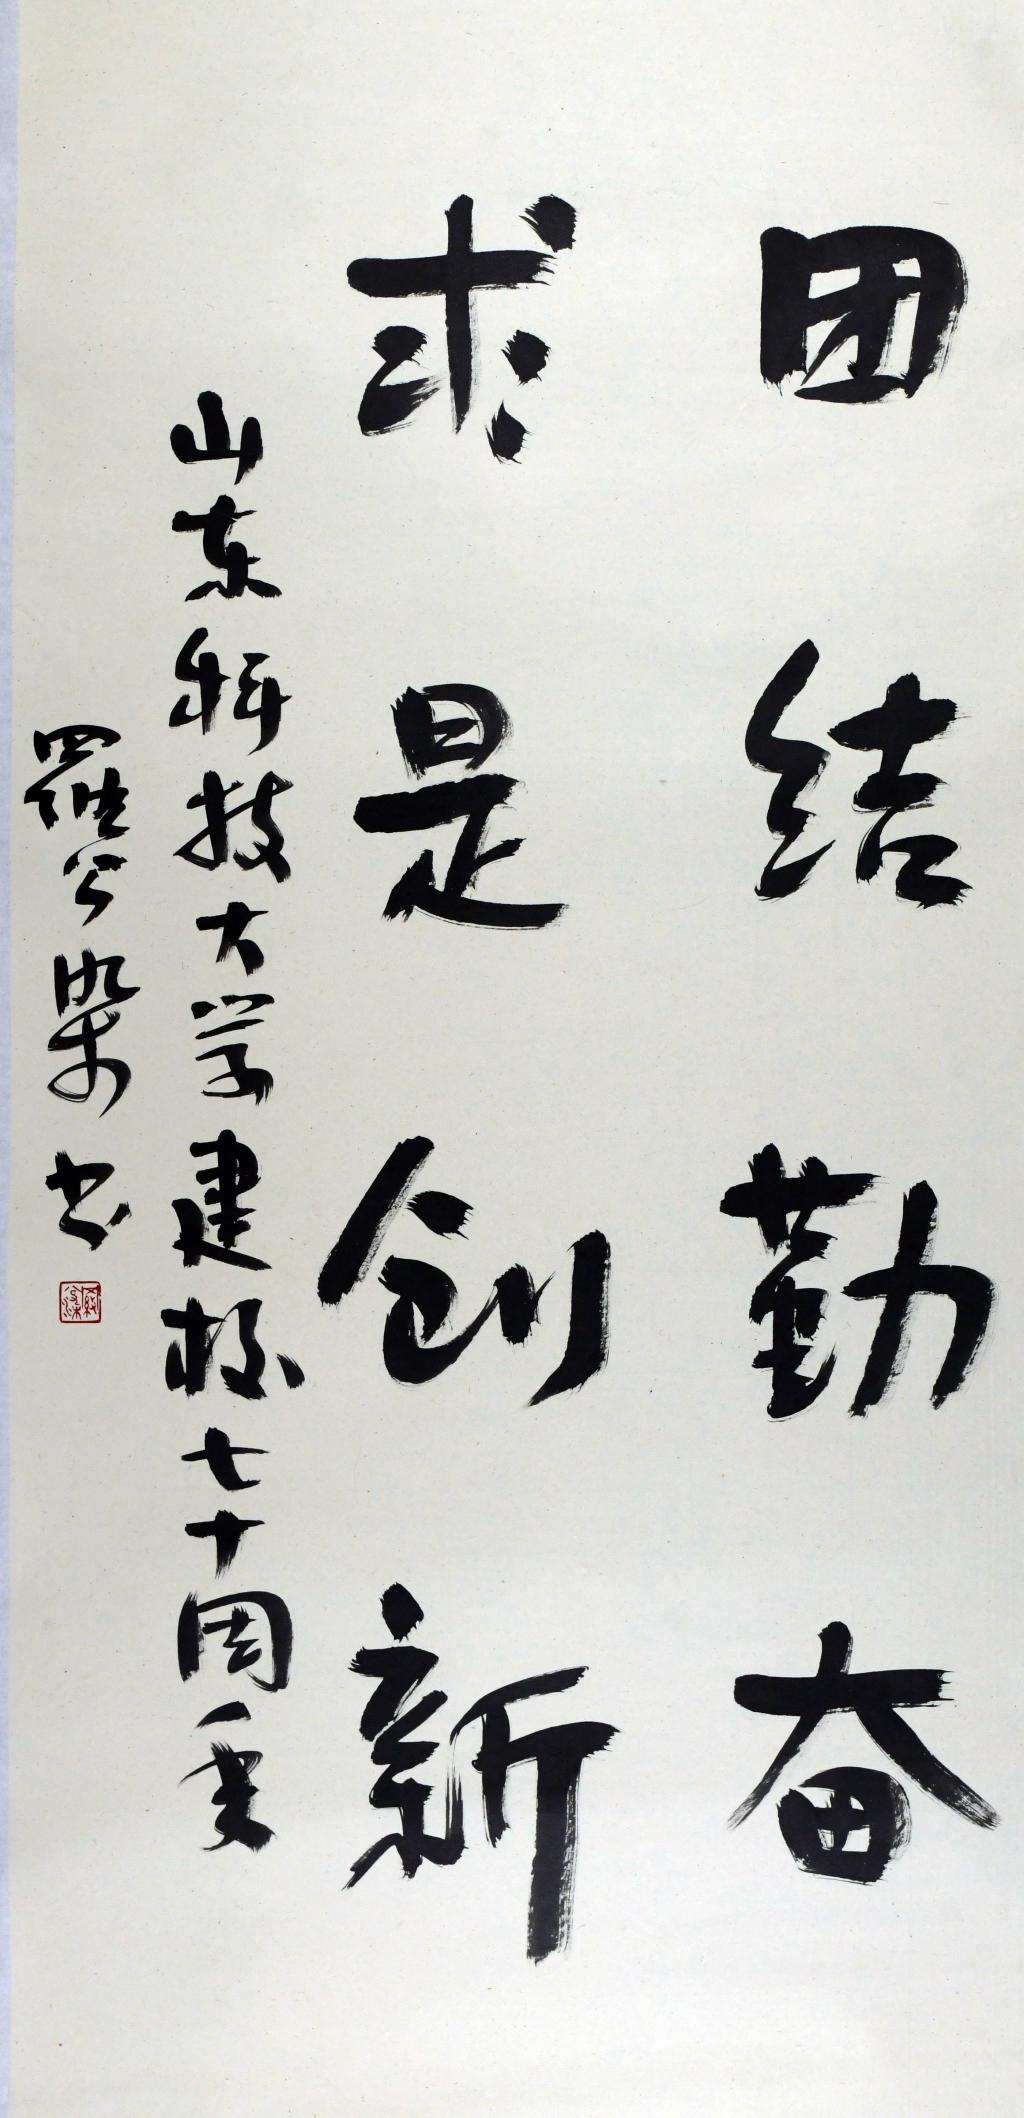 团结勤奋
求是创新
山东科技大学建校七十周年
罗公染书